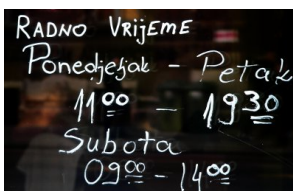 RADNO VRIJEME
Ponedjeljak - Petak
11⁰⁰ - 19³⁰
Subota
09⁰⁰ - 14⁰⁰